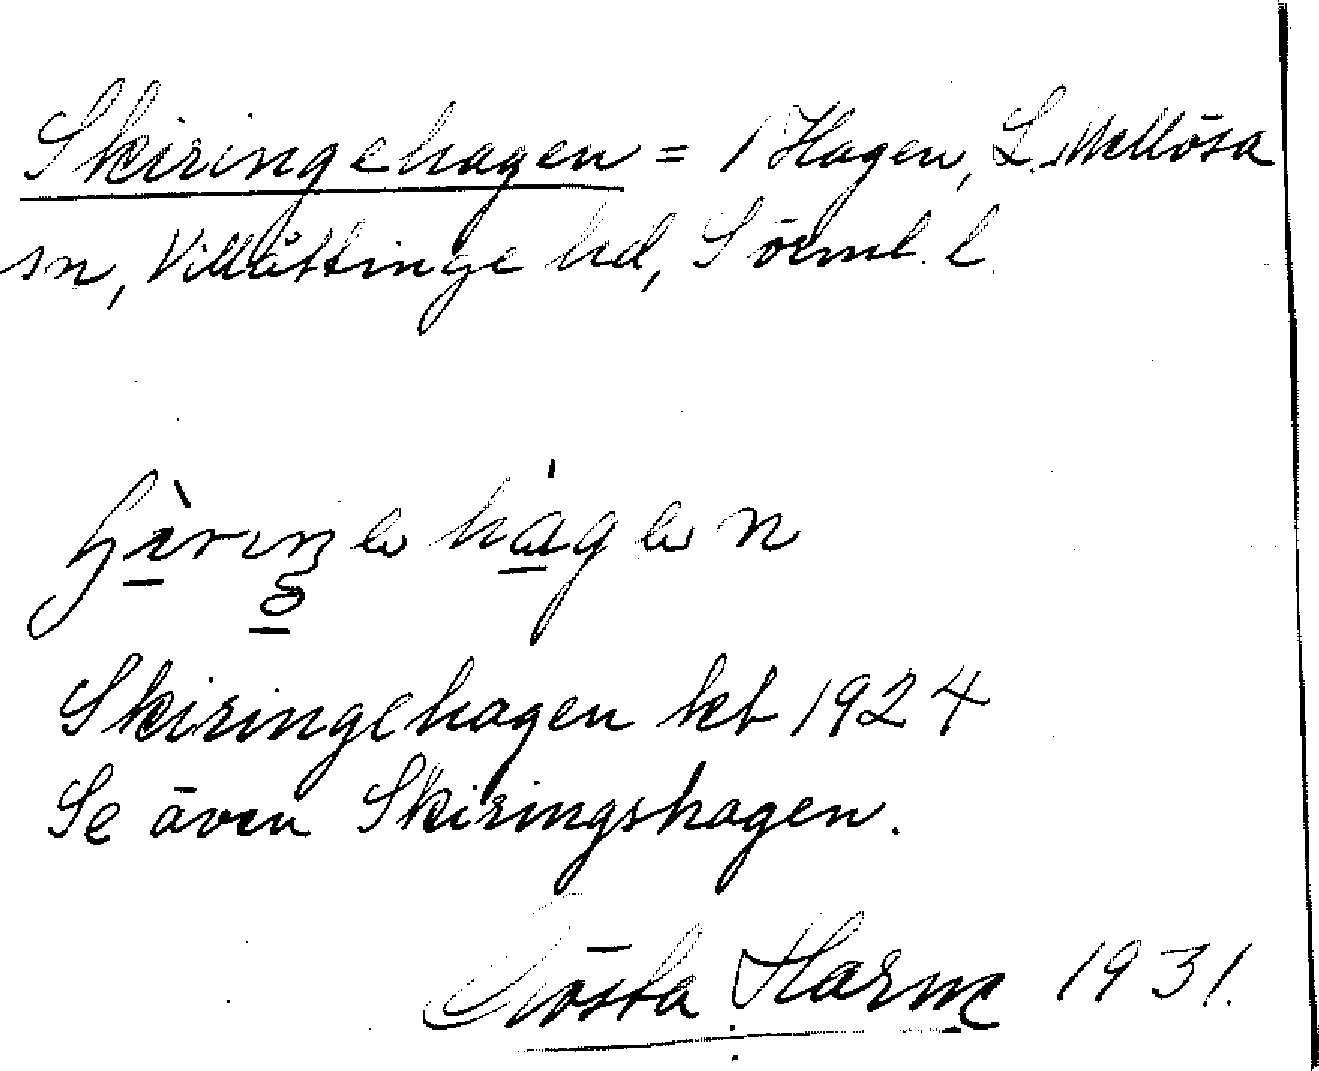 Skiringehagen = 1 Hagen, L. Mellösa
sn, Villåttinge hd, Sörml. l.
Skiringehagen kb 1924
Se även Skiringshagen.
Gösta Harm 1931.